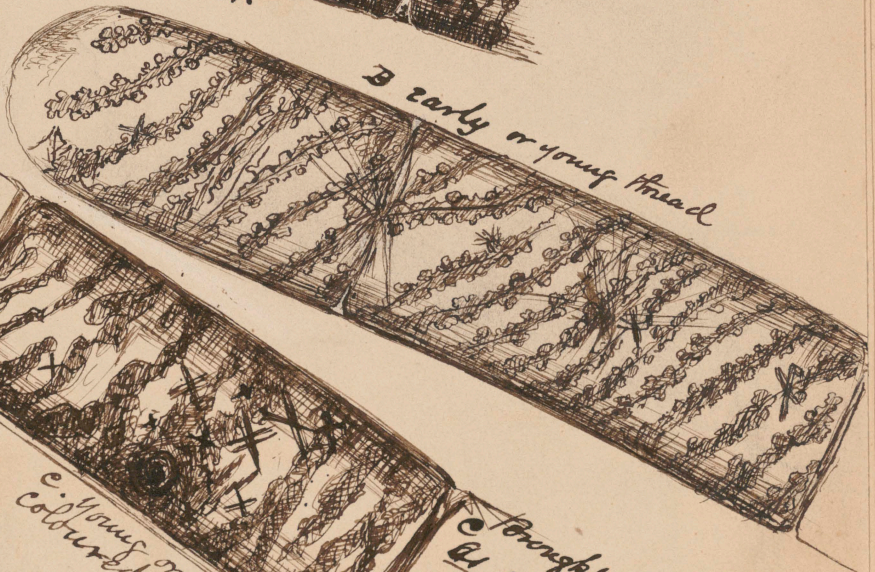 B early or young thread
C. Young
Coloured
C